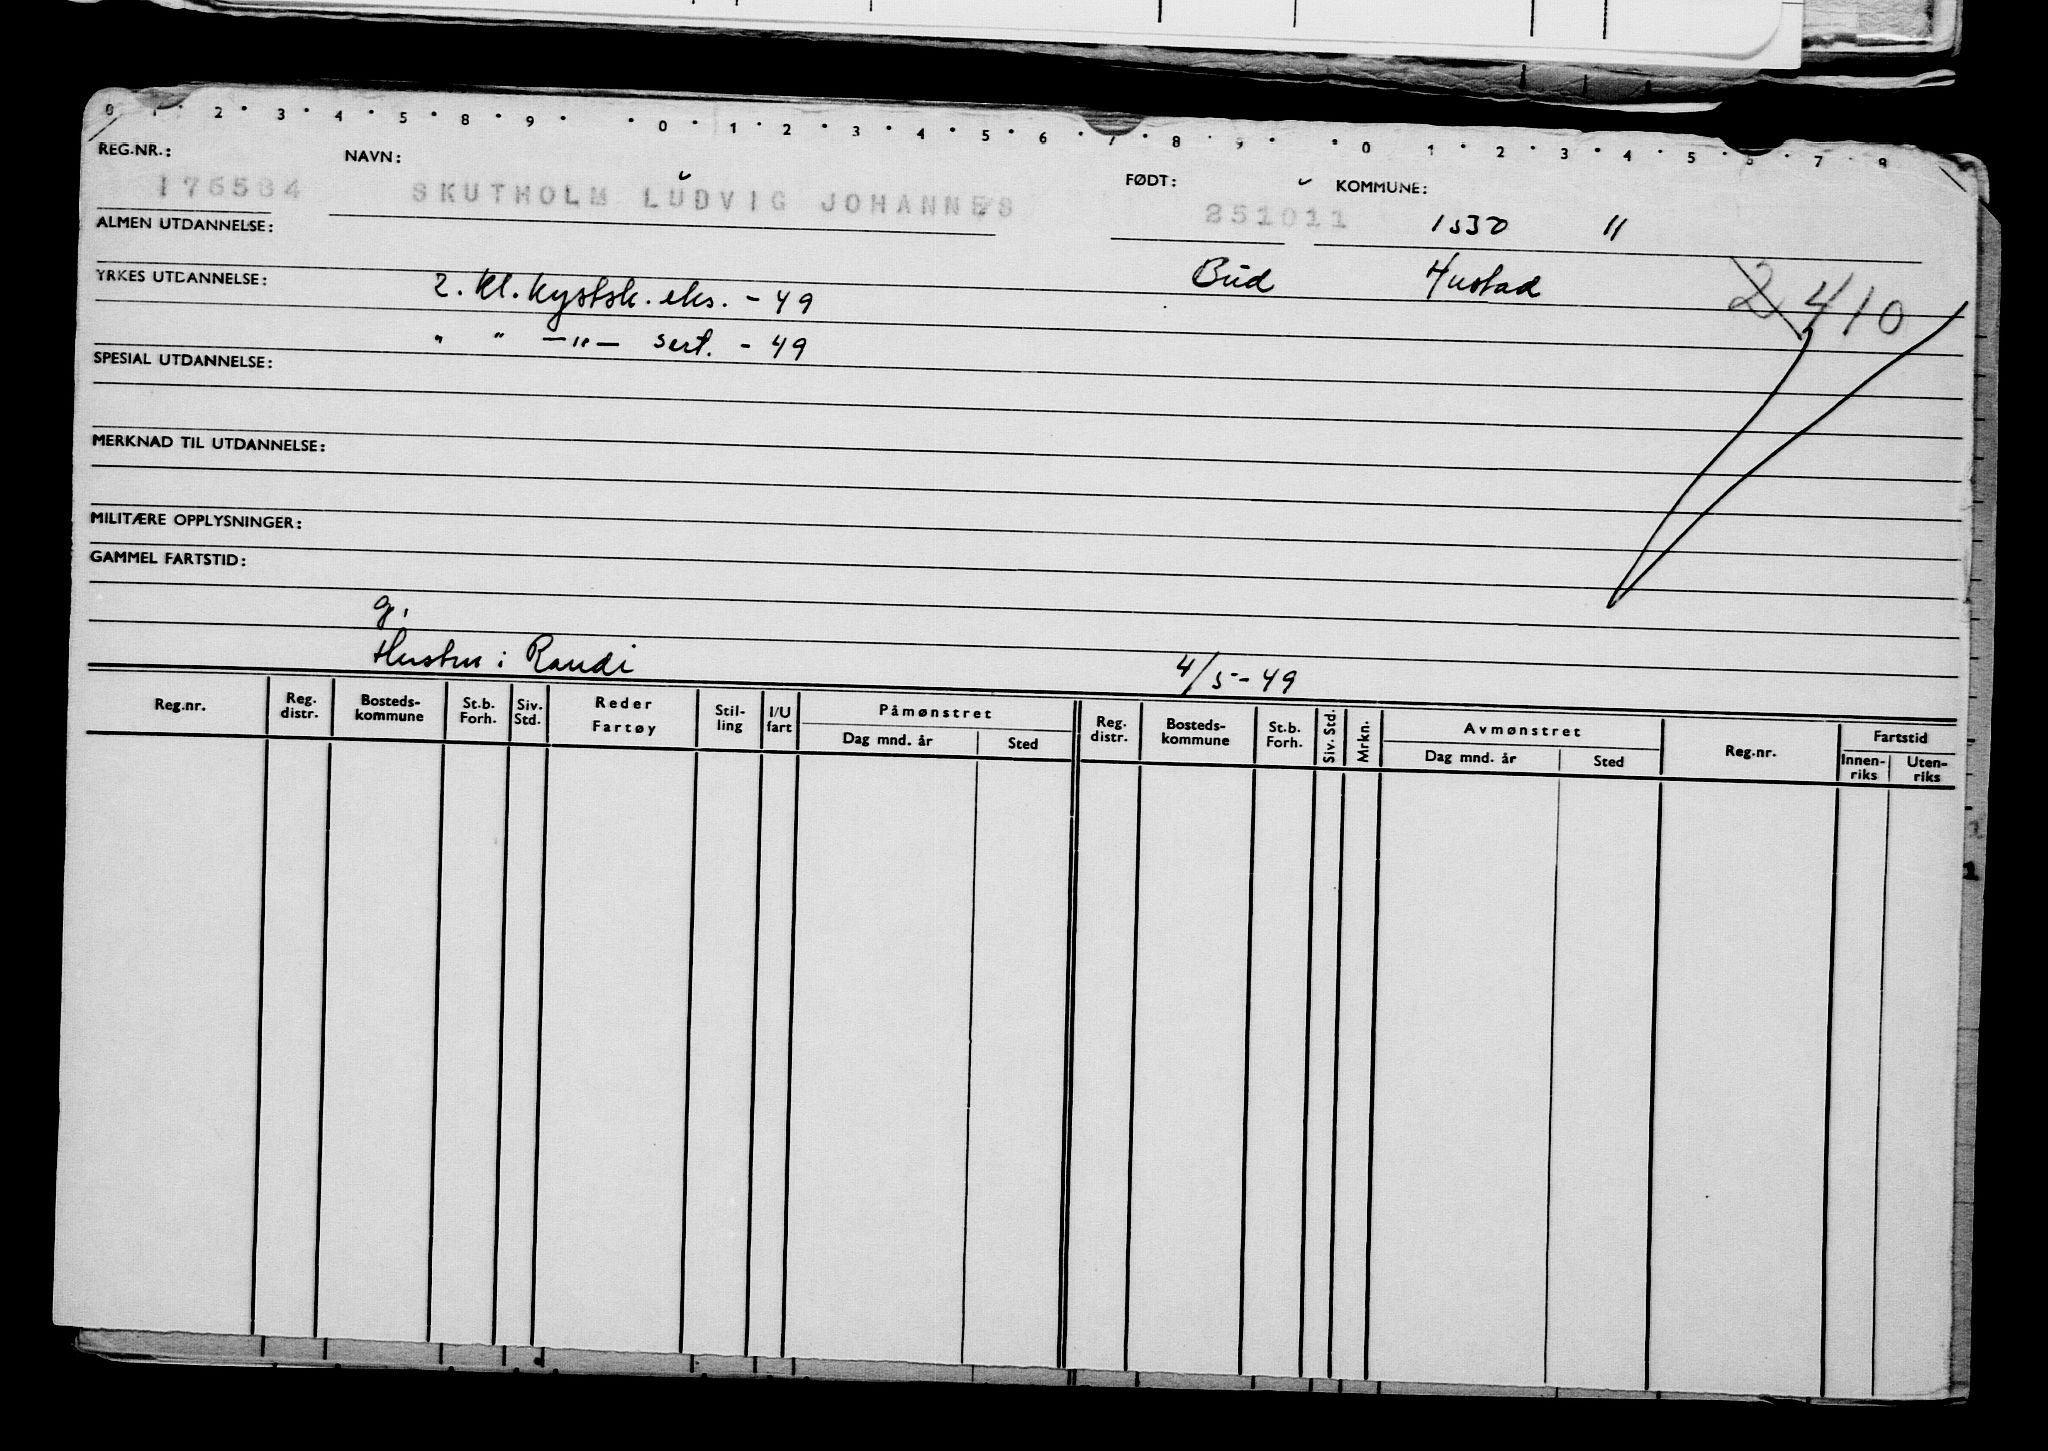 0 1 · 2 · 3 · 4 · 5 · 8 · 9 · · 0 · 1 · 2 · 3 · 4 · 5 · 6 · 7 · 8 · 9 · · 0 1 · 2 · 3 · 4 · 5 · 6 · 7 · 8
REG.NR.: NAVN: FØDT: KOMMUNE:
176584 SKUTHOLM LUDVIG JOHANNES 251011 1530 "
ALMEN UTDANNELSE:
Bud Hustad
YRKES UTDANNELSE: 2. kl. kystsk. eks. - 49 2 410
" " —"— sert. - 49
SPESIAL UTDANNELSE:
MERKNAD TIL UTDANNELSE:
MILITÆRE OPPLYSNINGER:
GAMMEL FARTSTID:
g.
Hustru: Randi 4/5-49
Reg.nr. Reg. distr. Bosteds-kommune St.b. Forh. Siv. Std. Reder Fartøy Stil-ling I/U fart Påmønstret Reg. distr. Bosteds-kommune St.b. Forh. Siv. Std. Mrkn. Avmønstret Reg.nr. Fartstid
Dag mnd. år Sted Dag mnd. år Sted Innen-riks Uten-riks